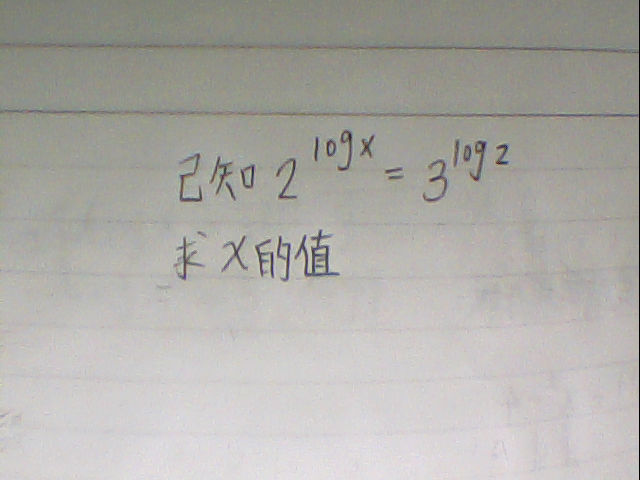 已知 2^{log x} = 3^{log 2}
求 x 的值